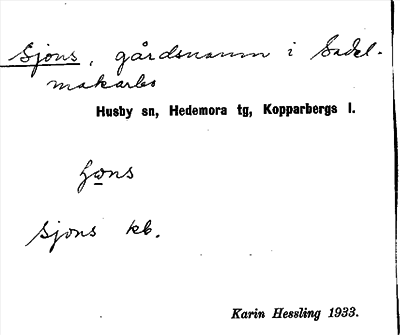 Sjons, gårdsnamn i Sadel-
makarbo
Husby sn, Hedemora tg, Kopparbergs l.
sjons kb.
Karin Hessling 1933.